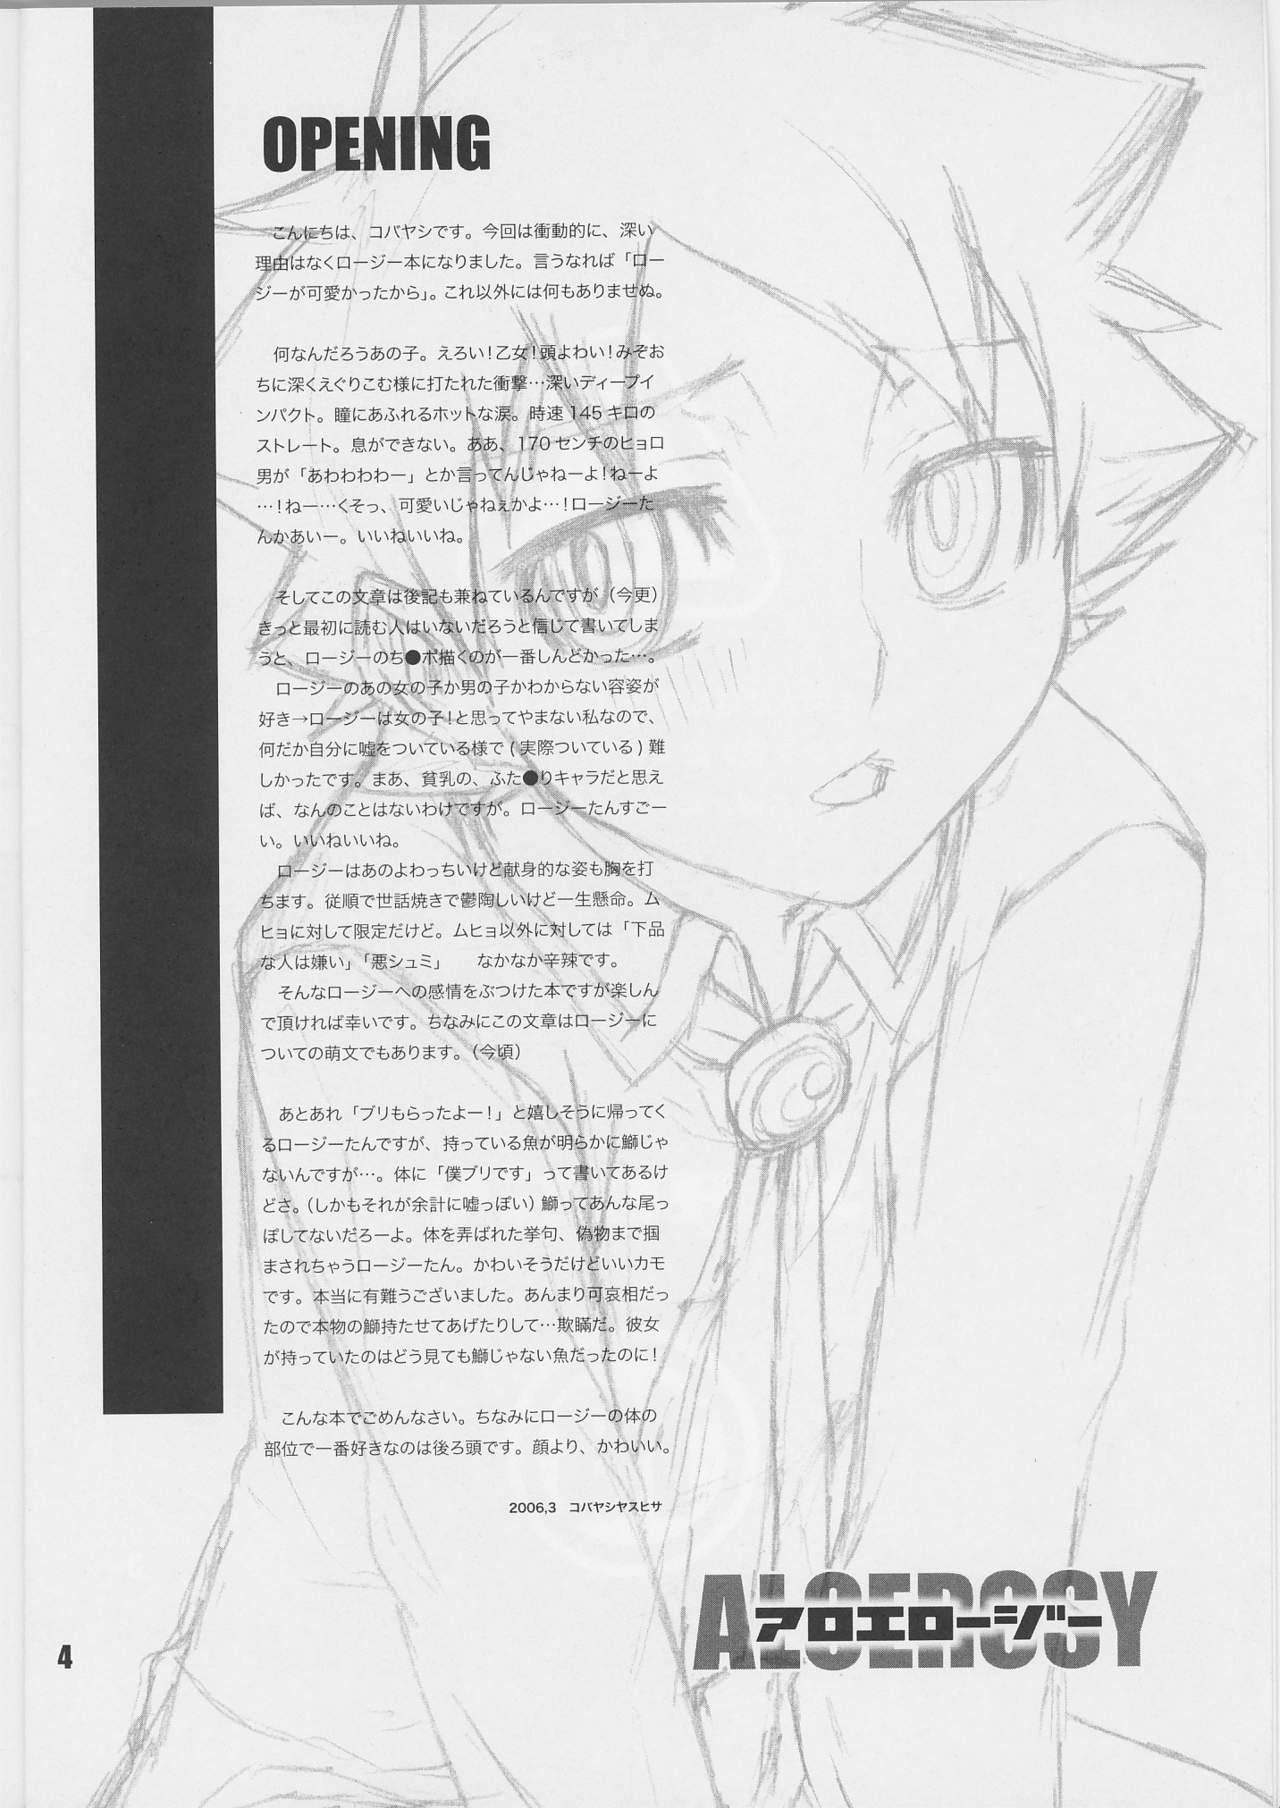 OPENING
こんにちは、コバヤシです。今回は衝動的に、深い
理由はなくロージー本になりました。言うなれば「ロー
ジーが可愛かったから」。これ以外には何もありませぬ。
何なんだろうあの子。えろい!乙女!頭よわい!みぞお
ちに深くえぐりこむ様に打たれた衝撃…深いディープイ
ンパクト。瞳にあふれるホットな涙。時速 145 キロの
ストレート。息ができない。ああ、170 センチのヒョロ
男が「あわわわわー」とか言ってんじゃねーよ!ねーよ
…!ねー…くそっ、可愛いじゃねぇかよ…!ロージーた
んかあいー。いいねいいね。
そしてこの文章は後記も兼ねているんですが（今更）
きっと最初に読む人はいないだろうと信じて書いてしま
うと、ロージーのち●ポ描くのが一番しんどかった…。
ロージーのあの女の子か男の子かわからない容姿が
好き→ロージーは女の子!と思ってやまない私なので、
何だか自分に嘘をついている様で ( 実際ついている ) 難
しかったです。まあ、貧乳の、ふた●りキャラだと思え
ば、なんのことはないわけですが。ロージーたんすごー
い。いいねいいね。
ロージーはあのよわっちいけど献身的な姿も胸を打
ちます。従順で世話焼きで鬱陶しいけど一生懸命。ム
ヒョに対して限定だけど。ムヒョ以外に対しては「下品
な人は嫌い」「悪シュミ」　なかなか辛辣です。
そんなロージーへの感情をぶつけた本ですが楽しん
で頂ければ幸いです。ちなみにこの文章はロージーに
ついての萌文でもあります。（今頃）
あとあれ「ブリもらったよー!」と嬉しそうに帰ってく
るロージーたんですが、持っている魚が明らかに鰤じゃ
ないんですが…。体に「僕ブリです」って書いてあるけ
どさ。（しかもそれが余計に嘘っぽい）鰤ってあんな尾っ
ぽしてないだろーよ。体を弄ばれた挙句、偽物まで掴
まされちゃうロージーたん。かわいそうだけどいいカモ
です。本当に有難うございました。あんまり可哀相だっ
たので本物の鰤持たせてあげたりして…欺瞞だ。彼女
が持っていたのはどう見ても鰤じゃない魚だったのに!
こんな本でごめんなさい。ちなみにロージーの体の
部位で一番好きなのは後ろ頭です。顔より、かわいい。
2006,3　コバヤシヤスヒサ
ALOEROSY
アロエロージー
4